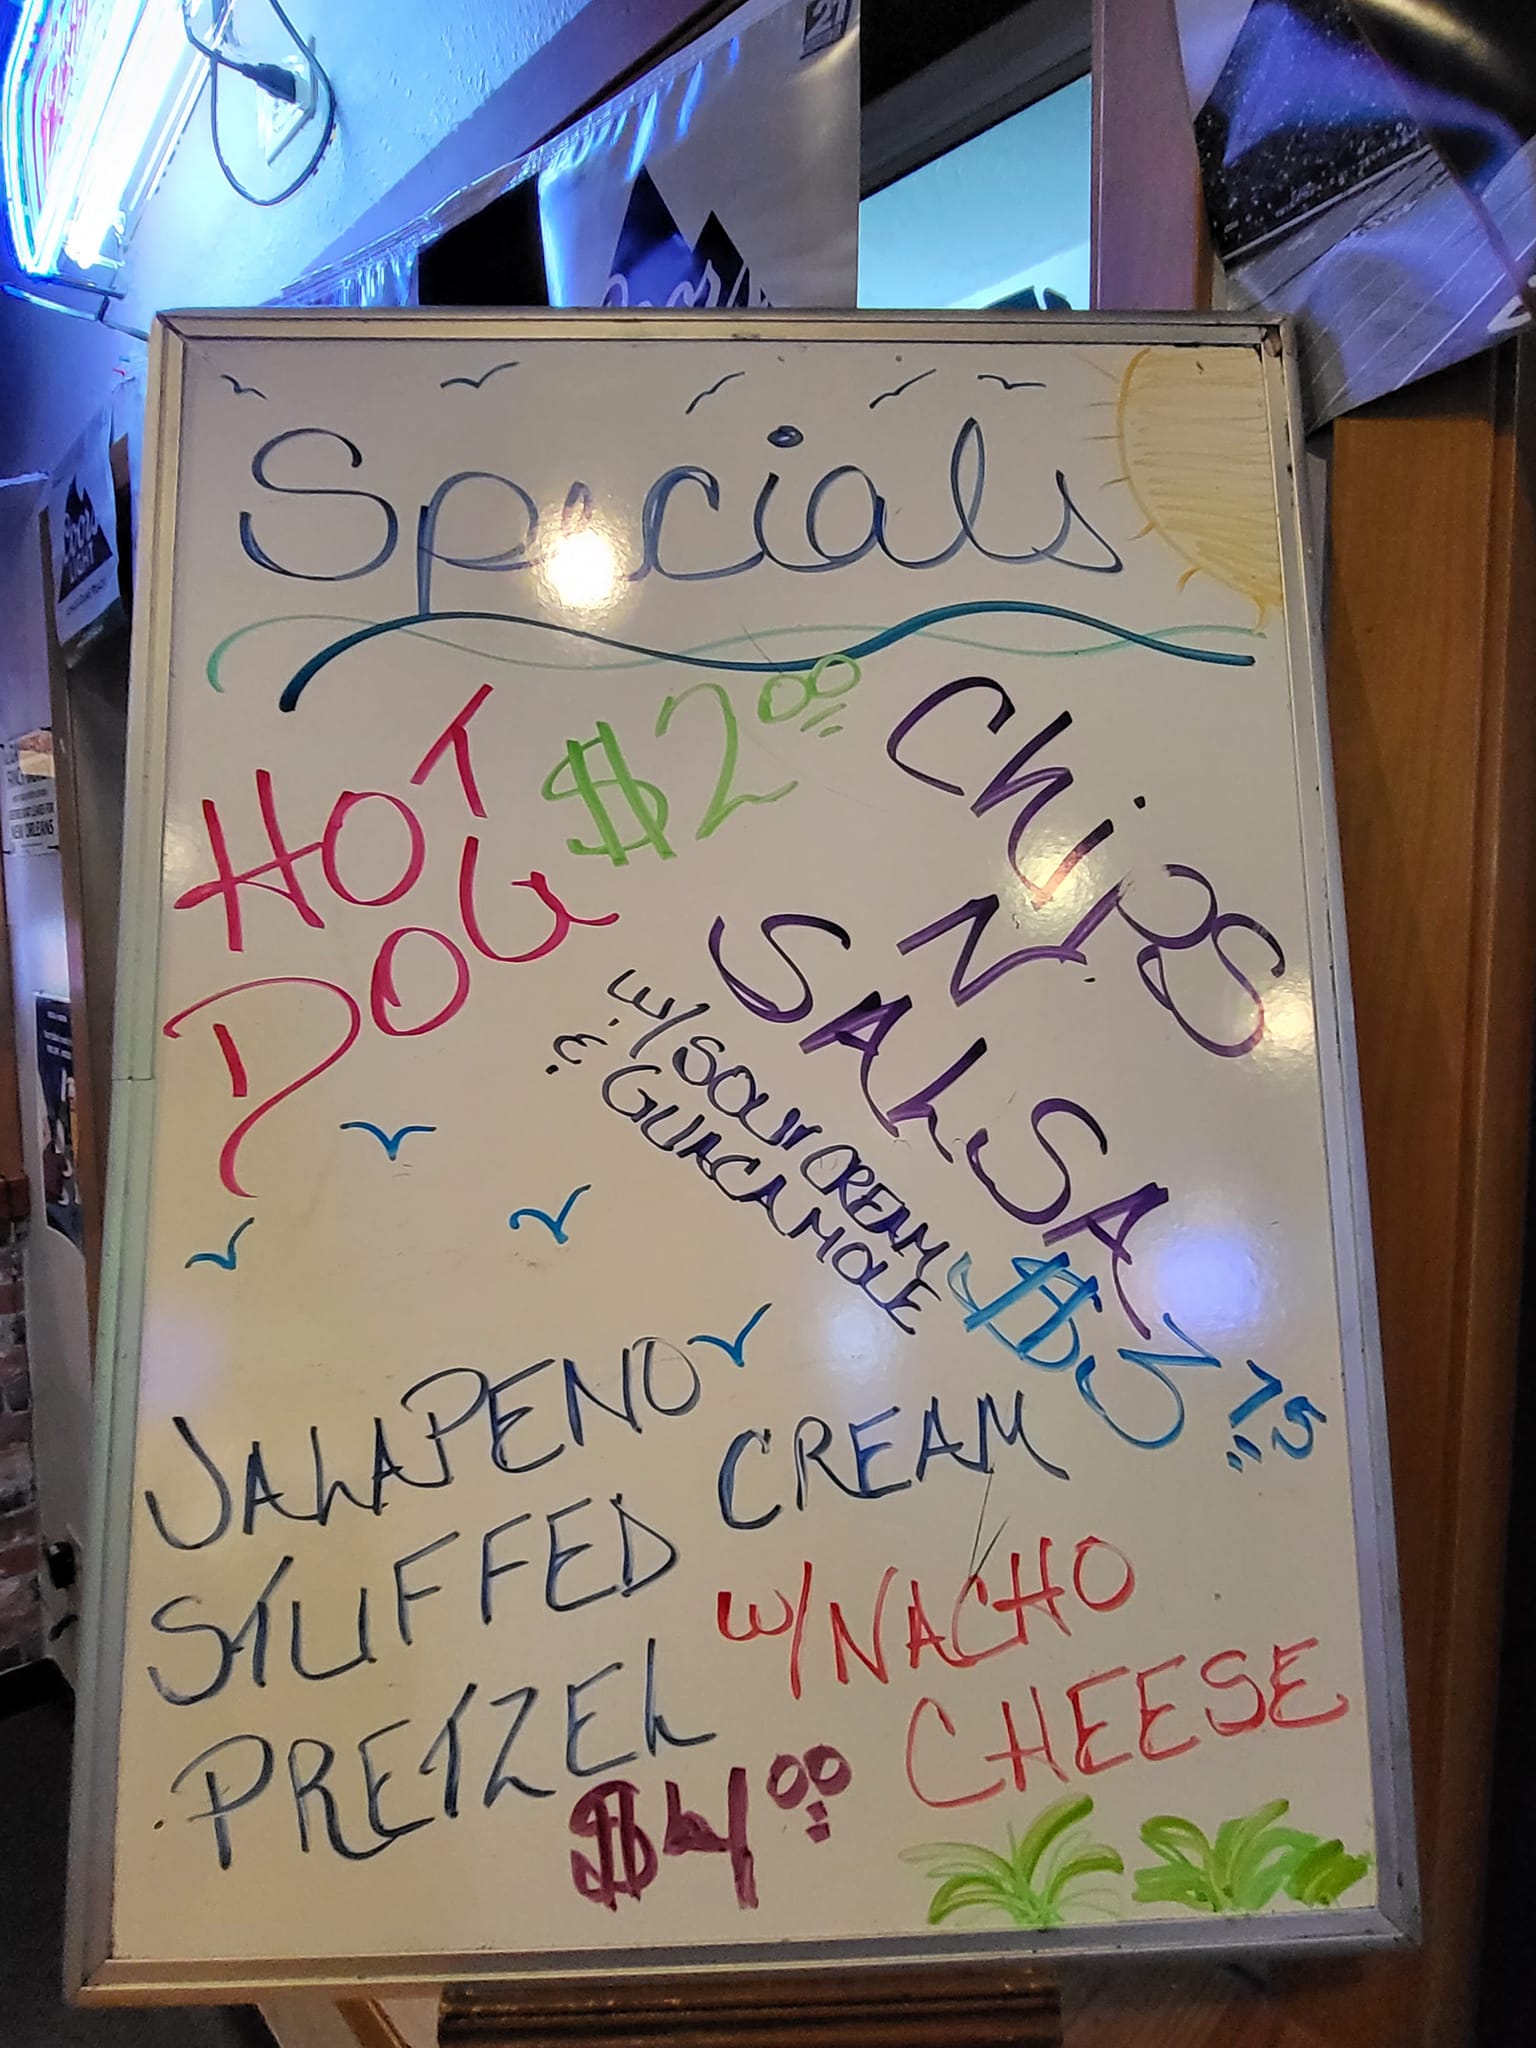 Specials
HOT DOG $2.00
Chips N' SALSA
w/ SOUR CREAM
& GUACAMOLE
$3.75
JALAPENO
CREAM
STUFFED
PRETZEL
w/ NACHO
CHEESE
$4.00
Coors
LIGHT
NEW ORLEANS
21